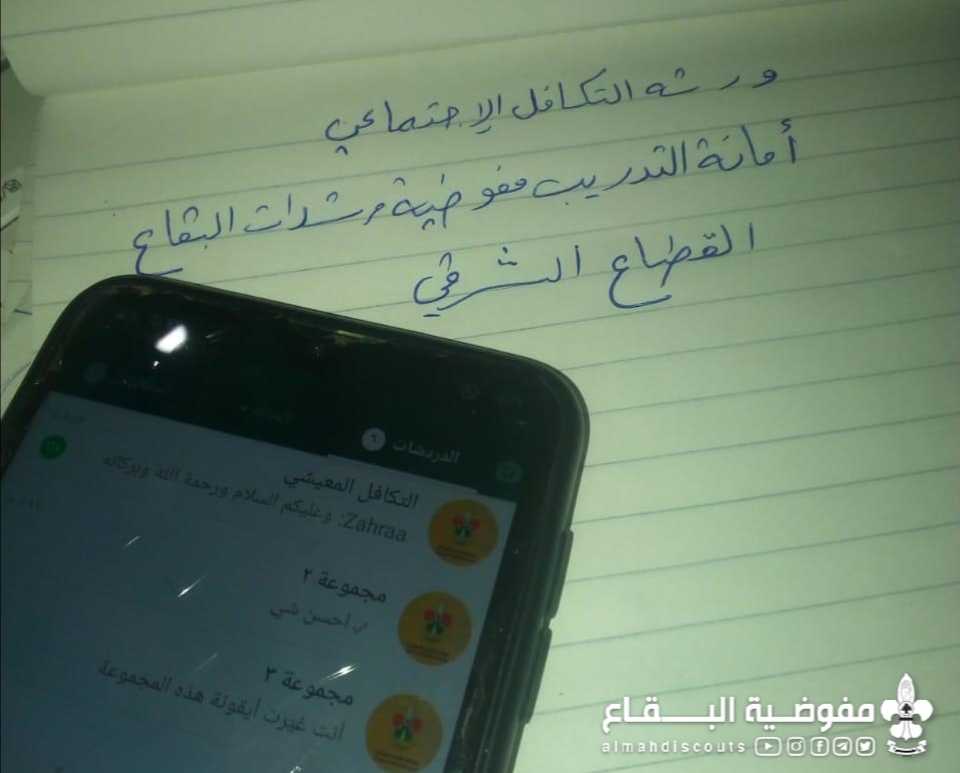 ورشه التكافل الإجتماعي
أمانة التدريب مفوضية مرشدات البقاع
القطاع الشرقي
الدردشات ٦
التكافل المعيشي
Zahraa: وعليكم السلام ورحمة الله وبركاته
مجموعة ٢
احسن شي
مجموعة ٣
أنت غيرت أيقونة هذه المجموعة
مفوضية البقاع
almahdiscouts